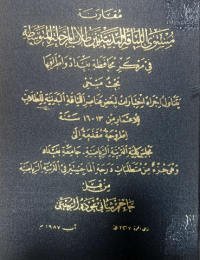 مقارنة
مستوى اللياقة البدنية بين طلاب المرحلة المتوسطة
في مركز محافظة بغداد واطرافها
بحث مسحي
يتناول اجراء اختبارات لبعض عناصر اللياقة البدنية للطلاب
للاعمار من ١٣-١٦ سنة
اطروحة مقدمة الى
مجلس كلية التربية الرياضية - جامعة بغداد
وهي جزء من متطلبات درجة الماجستير في التربية الرياضية
من قبل
آب ١٩٨٧ م